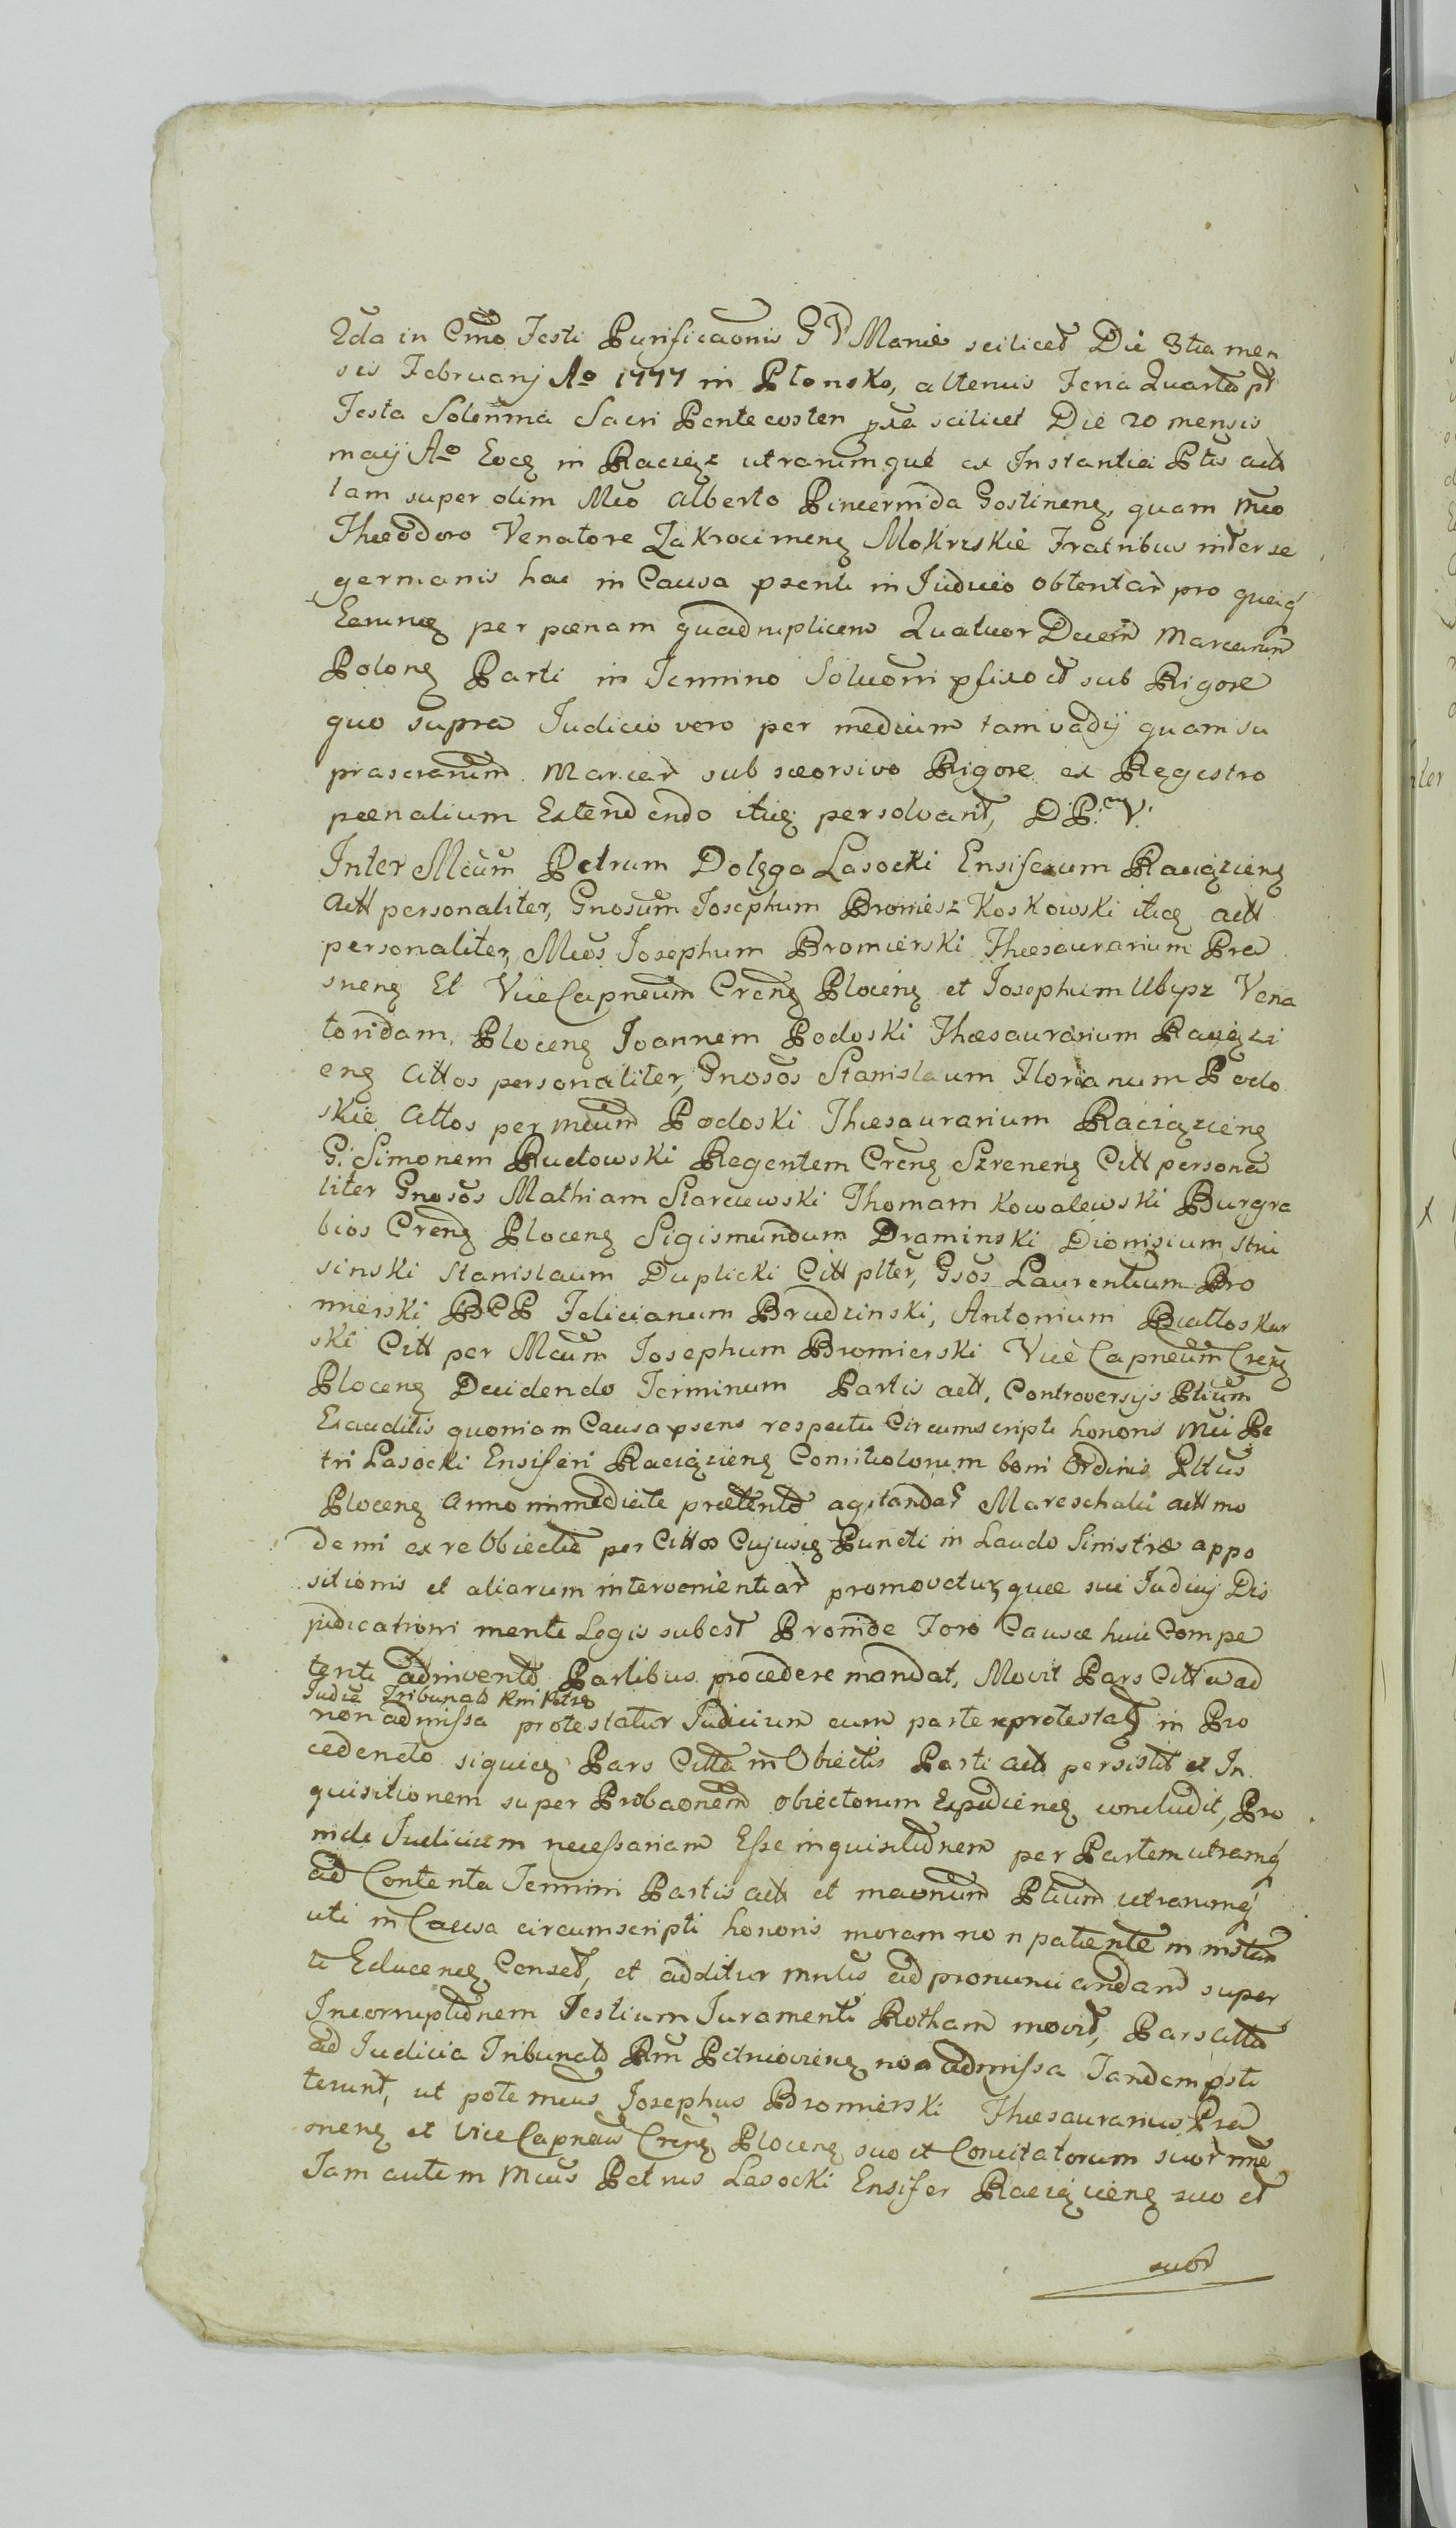 2da in Cmo Festi Purificaonis G V Mariæ scilicet Die 3tia men
sis Februarij Ao 1777 in Plonsko, alterius Feria Quarta pt
Festa Solenna Sacri Pentecosten pxa scilicet Die 20 mensis
maij Ao Eoq in Raciąż utrarumque ex Instantia Ptis actt
tam super olim Mco Alberto Pincernida Gostinenq, quam Mco
Theodoro Venatore Zakrocimenq Mokrzskie Fratribus inter se
germanis hac in Causa psenti in Iudicio obtentar pro queiq
Earumq per pœnam quadruplicem Quatuor Decem Marcarum
Polonq Parti in Termino Solvonni pfixo et sub Rigore
quo supra Iudicio vero per medium tam vadij quam su
prascrarum Marcar sub sæorsivo Rigore ex Regestro
pænalium Extendendo itiq persolvant, D.P. V.
Inter Mcum Petrum Dolęga Lasocki Ensiferum Raciązienq
Actt personaliter, Gnosum Iosephum Bromiesz Koskowski itiq actt
personaliter, Mcos Iosephum Bromierski Thæsaurarium Pra
snenq Et ViceCapneum Crenq Plocenq et Iosephum Ubysz Vena
toridam, Plocenq Ioannem Podoski Thæsaurarium Raciązi
enq Cittos personaliter, Gnosos Stanislaum Florianum Podo
skie Cittos per mcum Podoski Thæsaurarium Raciązienq
G. Simonem Rudowski Regentem Crenq Szrenenq Citt persona
liter Gnosos Mathiam Starczewski Thomam Kowalewski Burgra
bios Crenq Plocenq Sigismundum Draminski Dionisium Stru
sinski Stanislaum Duplicki Citt plter, Gsos Laurentium Bro
mierski BCP Felicianum Brudzinski, Antonium Białłoskur
ski Citt per Mcum Iosephum Bromierski ViceCapneum Crenq
Plocenq Decidendo Terminum Partis actt, Controversijs Ptium
Exauditis quoniam Causa psens respectu Circumscripti honoris Mci Pe
tri Lasocki Ensiferi Raciązienq Comitiolorum boni Ordinis Pltus
Plocenq Anno immediate prætento agitandar Mareschalci actt mo
derni ex re Obiectæ per Cittos Cujusiq Puncti in Laudo Sinistræ appo
sitionis et aliarum intervenientiar promovetur, quæ sui Iudicij Dis
judicationi mente Legis subest Proinde Foro Causæ huic Compe
tenti adinvento Partibus procedere mandat, Movit Pars Citt ad
Iudia Tribunat Rni Petrio
non admissa protestatur Iudicium cum parte reprotestatq in Pro
cedendo siquiq Pars Citta in Obiectis Parti actt persistit et In
quisitionem super Probaonem obiectorum Expedienq concludit, Pro
inde Iudicium necessariam Esse inquisitionem per Partem utramq
ad Contenta Termini Partis actt et maonum Ptium utrarumq
uti in Causa circumscripti honoris moram non patiente in instan
ti Educenq Censet, et additur Mnlis ad pronunciandam super
Incorruptionem Testium Iuramenti Rotham movit, Pars citta
ad Iudicia Tribunat Rni Petricovienq non admissa Tandem psti
terunt, ut pote mcus Iosephus Bromierski Thæsaurarius Pra
snenq et ViceCapneus Crenq Plocenq suo et Concitatorum suor nne
Jam autem Mcus Petrus Lasocki Ensifer Raciązienq suo et
suor